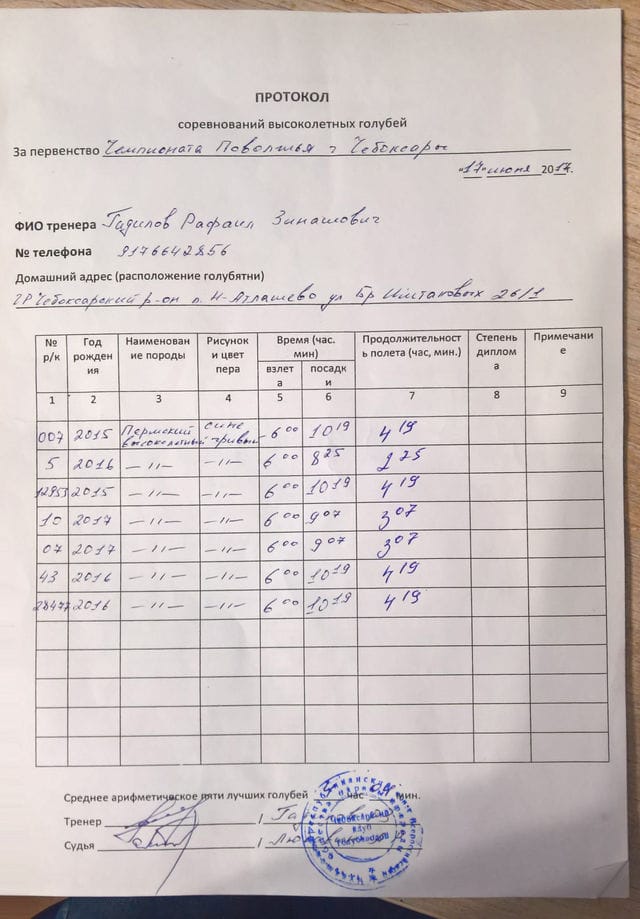 ПРОТОКОЛ
соревнований высоколетных голубей
За первенство Чемпионата Поволжья г Чебоксары
"17" июня 2017.
ФИО тренера Гадилов Рафаил Зинашович
№ телефона 9176642856
Домашний адрес (расположение голубятни)
ЧР Чебоксарский р-он п. Н-Атлашево ул Бр Илтановых 26/1
№ р/к Год рождения Наименование породы Рисунок и цвет пера Время (час. мин) Продолжительность полета (час, мин.) Степень диплома Примечание
взлета посадки
1 2 3 4 5 6 7 8 9
007 2015 Пермский высоколетный сине гривый 6 00 10 19 4 19
5 2016 — // — — // — 6 00 8 25 2 25
12953 2015 — // — — // — 6 00 10 19 4 19
10 2017 — // — — // — 6 00 9 07 3 07
07 2017 — // — — // — 6 00 9 07 3 07
43 2016 — // — — // — 6 00 10 19 4 19
28477 2016 — // — — // — 6 00 10 19 4 19
Среднее арифметическое пяти лучших голубей час мин.
Тренер / /
Судья / /
Чебоксарский
клуб
голубеводов